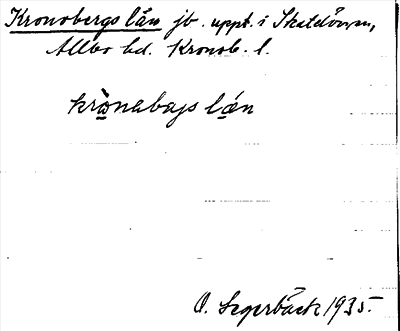 Kronobergs län jb. uppt. i Skatelövsn,
Allbo hd. Kronob. l.
krònabæjs lǽn
O. Segerbäck 1935.